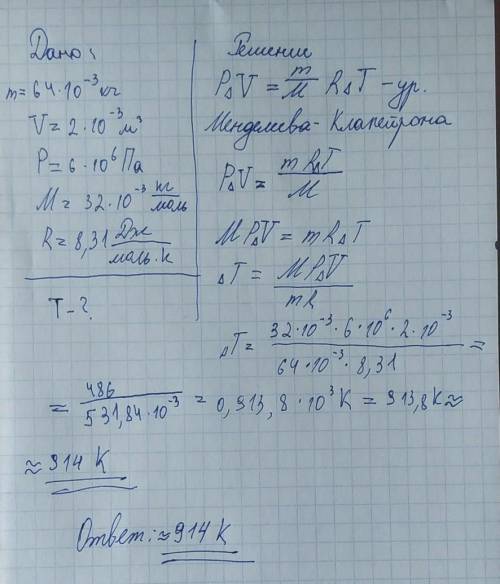 Дано:
m = 64·10⁻³ кг
V = 2·10⁻³ м³
P = 6·10⁶ Па
M = 32·10⁻³ кг/моль
R = 8,31 Дж/моль·К
T - ?
Решение
P△V = m/M R△T - ур.
Менделеева-Клапейрона
P△V = mR△T/M
MP△V = mR△T
△T = MP△V/mR
△T = 32·10⁻³·6·10⁶·2·10⁻³/64·10⁻³·8,31 =
= 486/531,84·10⁻³ = 0,913,8·10³ К = 913,8К ≈
≈ 914 К
Ответ: ≈ 914 К